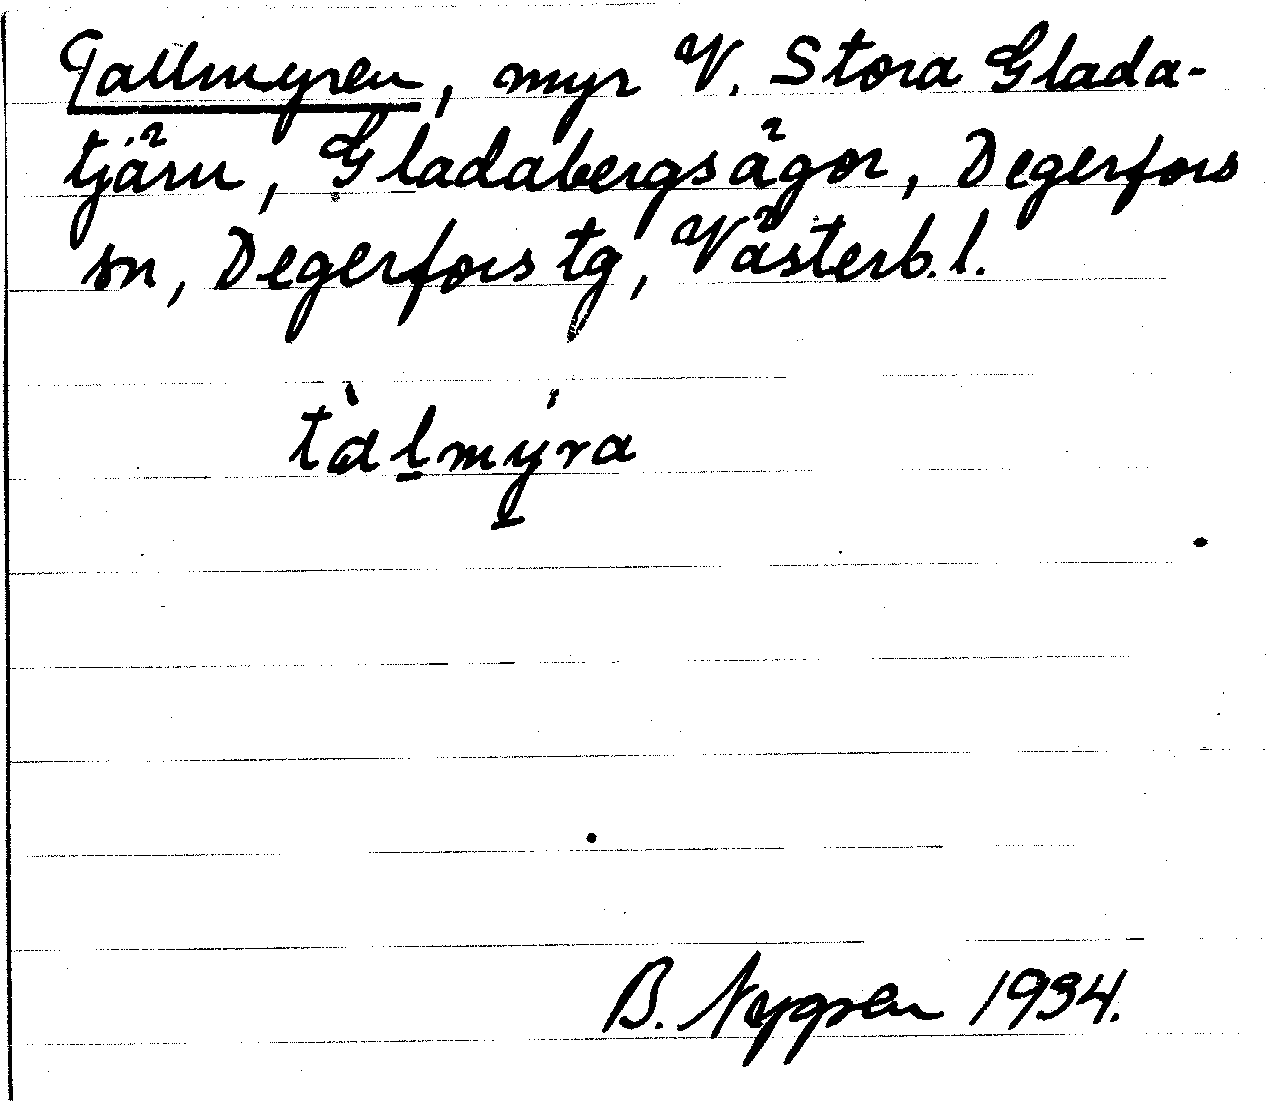 Tallmyren, myr V. Stora Glada-
tjärn, Gladabergsägor, Degerfors
sn, Degerfors tg, Västerb. l.
tàl̠mý̠ra
B. Nygren 1934.